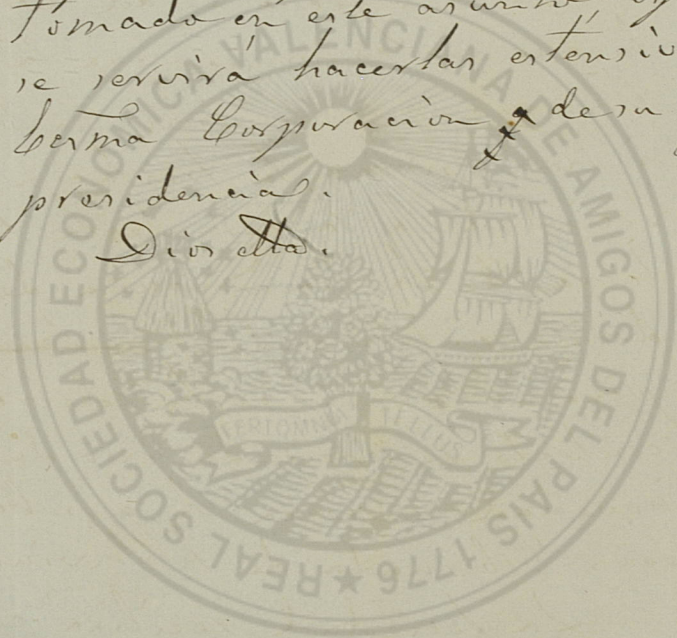 tomado en este asunto, y
se servirá hacerlas estensiv
Corporacion de su
presidencia.
Dios etta.
REAL SOCIEDAD ECONOMICA VALENCIANA DE AMIGOS DEL PAIS 1776 ★
FERT OMNIA TELLUS